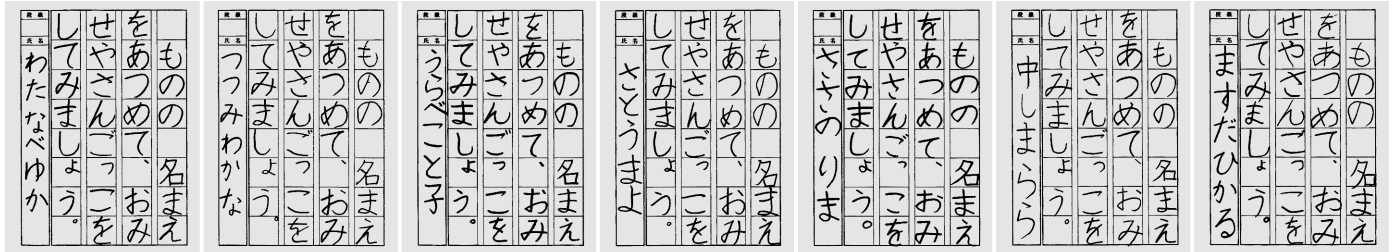 ものの 名まえ
をあつめて、おみ
せやさんごっこを
してみましょう。
段級
氏名
わたなべゆか
ものの 名まえ
をあつめて、おみ
せやさんごっこを
してみましょう。
段級
氏名
つつみわかな
ものの 名まえ
をあつめて、おみ
せやさんごっこを
してみましょう。
段級
氏名
うらべこと子
ものの 名まえ
をあつめて、おみ
せやさんごっこを
してみましょう。
段級
氏名
さとうまよ
ものの 名まえ
をあつめて、おみ
せやさんごっこを
してみましょう。
段級
氏名
ささのりま
ものの 名まえ
をあつめて、おみ
せやさんごっこを
してみましょう。
段級
氏名
中しまらら
ものの 名まえ
をあつめて、おみ
せやさんごっこを
してみましょう。
段級
氏名
ますだひかる